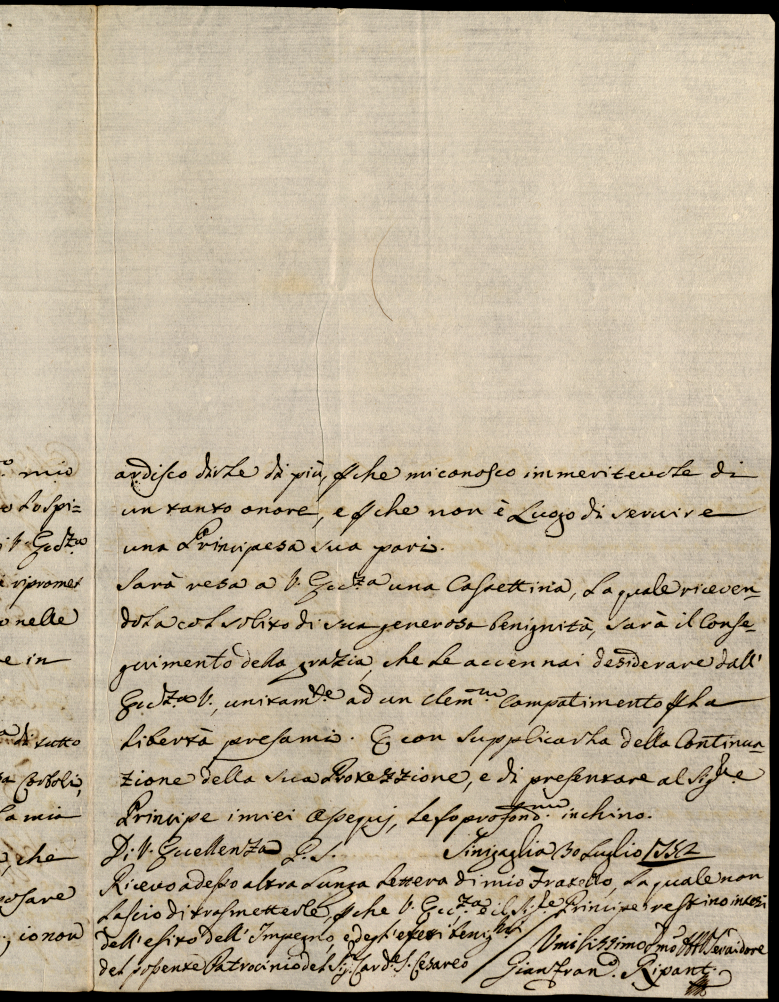 ardisco dirle di più, p che mi conosco immeritevole di
un tanto onore, e p che non è Luogo di servire
una Principesa sua pari.
Sarà resa a V. Ecc.za una Cassettina, La quale riceven-
dola col solito di sua generosa benignità, sarà il Conse-
guimento della grazia, che Le accennai desiderare dall'
Ecc.za V., unitam.te ad un clem.mo Compatimento p La
Libertà presami. E con supplicarla della Continua-
zione della sua Protezzione, e di presentare al Sig.re
Principe i miei Ossequj, Le fo profond.mo inchino.
Di V. Eccellenza P. S. Sinigaglia 30 Luglio 1752
Ricevo adesso altra Lunga Lettera di mio Fratello, La quale non
Lascio di trasmetterle, p che V. Ecc.za e il Sig.re Principe restino intesi
dell'esito dell'Impegno, e degl'effetti
del possente Patrocinio del Sig. Card.le S. Cesareo
Umilissimo Servidore
Gian Fran.o Ripanti
mio
Lospi=
V. Ecc.za
ripromet
nelle
e in
di tutto
La mia
che
io non